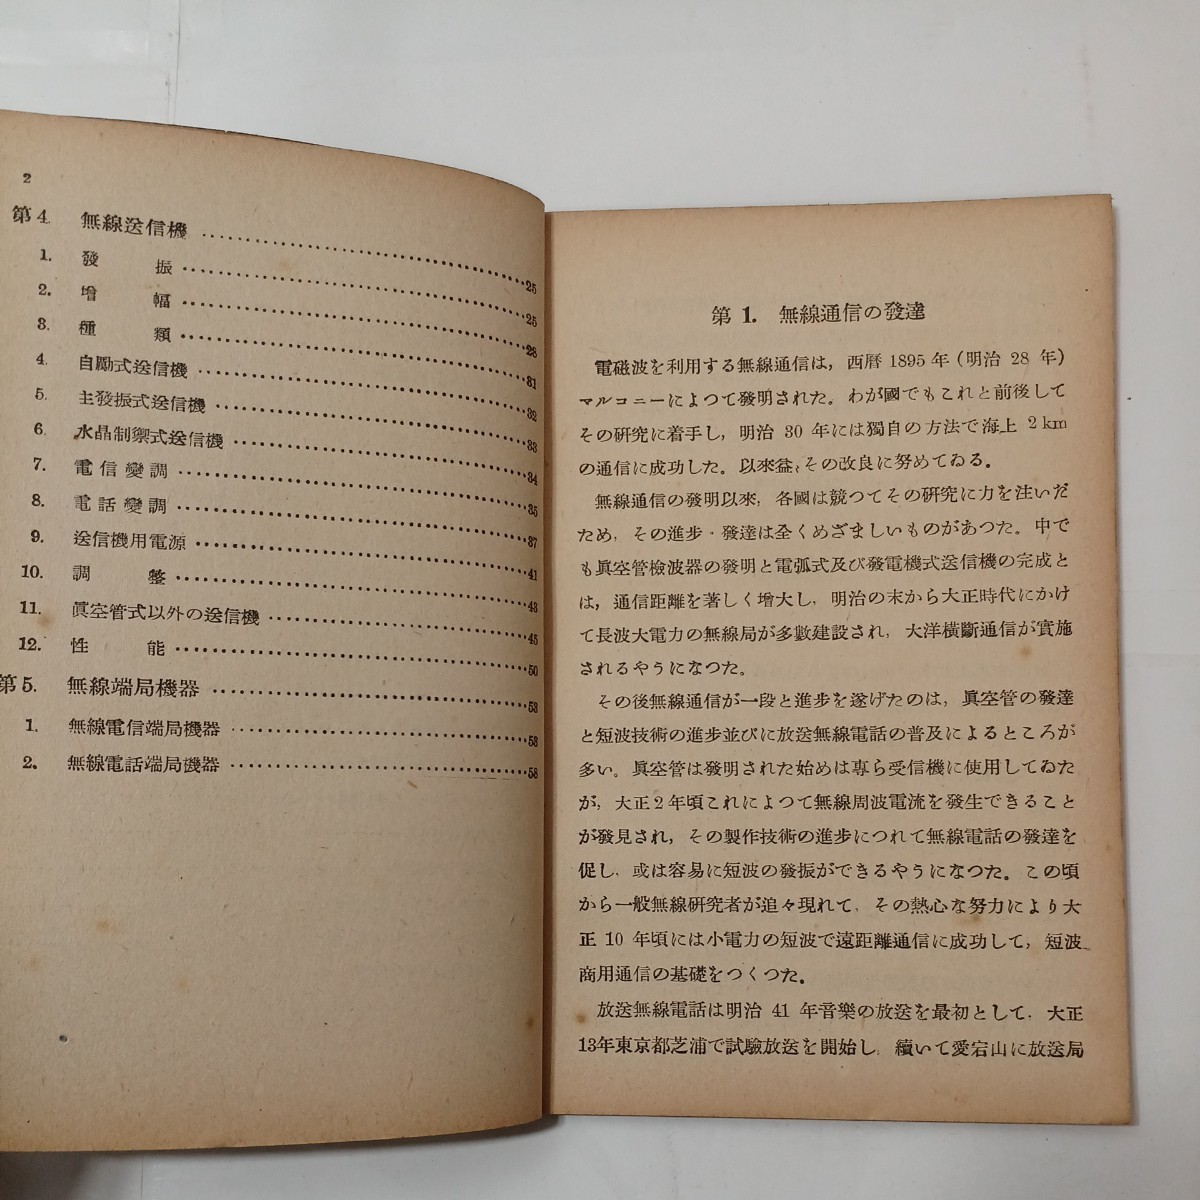 2
第4. 無線送信機 ……25
1. 發振 ……25
2. 增幅 ……28
3. 種類 ……31
4. 自勵式送信機 ……32
5. 主發振式送信機 ……33
6. 水晶制禦式送信機 ……34
7. 電信變調 ……35
8. 電話變調 ……37
9. 送信機用電源 ……41
10. 調整 ……43
11. 眞空管式以外の送信機 ……45
12. 性能 ……50
第5. 無線端局機器 ……53
1. 無線電信端局機器 ……53
2. 無線電話端局機器 ……58
第1. 無線通信の發達
電磁波を利用する無線通信は，西曆1895年（明治28年）
マルコニーによつて發明された。わが國でもこれと前後して
その硏究に着手し，明治30年には獨自の方法で海上2km
の通信に成功した。以來益々その改良に努めてゐる。
無線通信の發明以來，各國は競つてその硏究に力を注いだ
ため，その進步・發達は全くめざましいものがあつた。中で
も眞空管檢波器の發明と電弧式及び發電機式送信機の完成と
は，通信距離を著しく增大し，明治の末から大正時代にかけ
て長波大電力の無線局が多數建設され，大洋橫斷通信が實施
されるやうになつた。
その後無線通信が一段と進步を遂げたのは，眞空管の發達
と短波技術の進步並びに放送無線電話の普及によるところが
多い。眞空管は發明された始めは專ら受信機に使用してゐた
が，大正2年頃これによつて無線周波電流を發生できること
が發見され，その製作技術の進步につれて無線電話の發達を
促し，或は容易に短波の發振ができるやうになつた。この頃
から一般無線硏究者が追々現れて，その熱心な努力により大
正10年頃には小電力の短波で遠距離通信に成功して，短波
商用通信の基礎をつくつた。
放送無線電話は明治41年音樂の放送を最初として，大正
13年東京都芝浦で試驗放送を開始し，續いて愛宕山に放送局